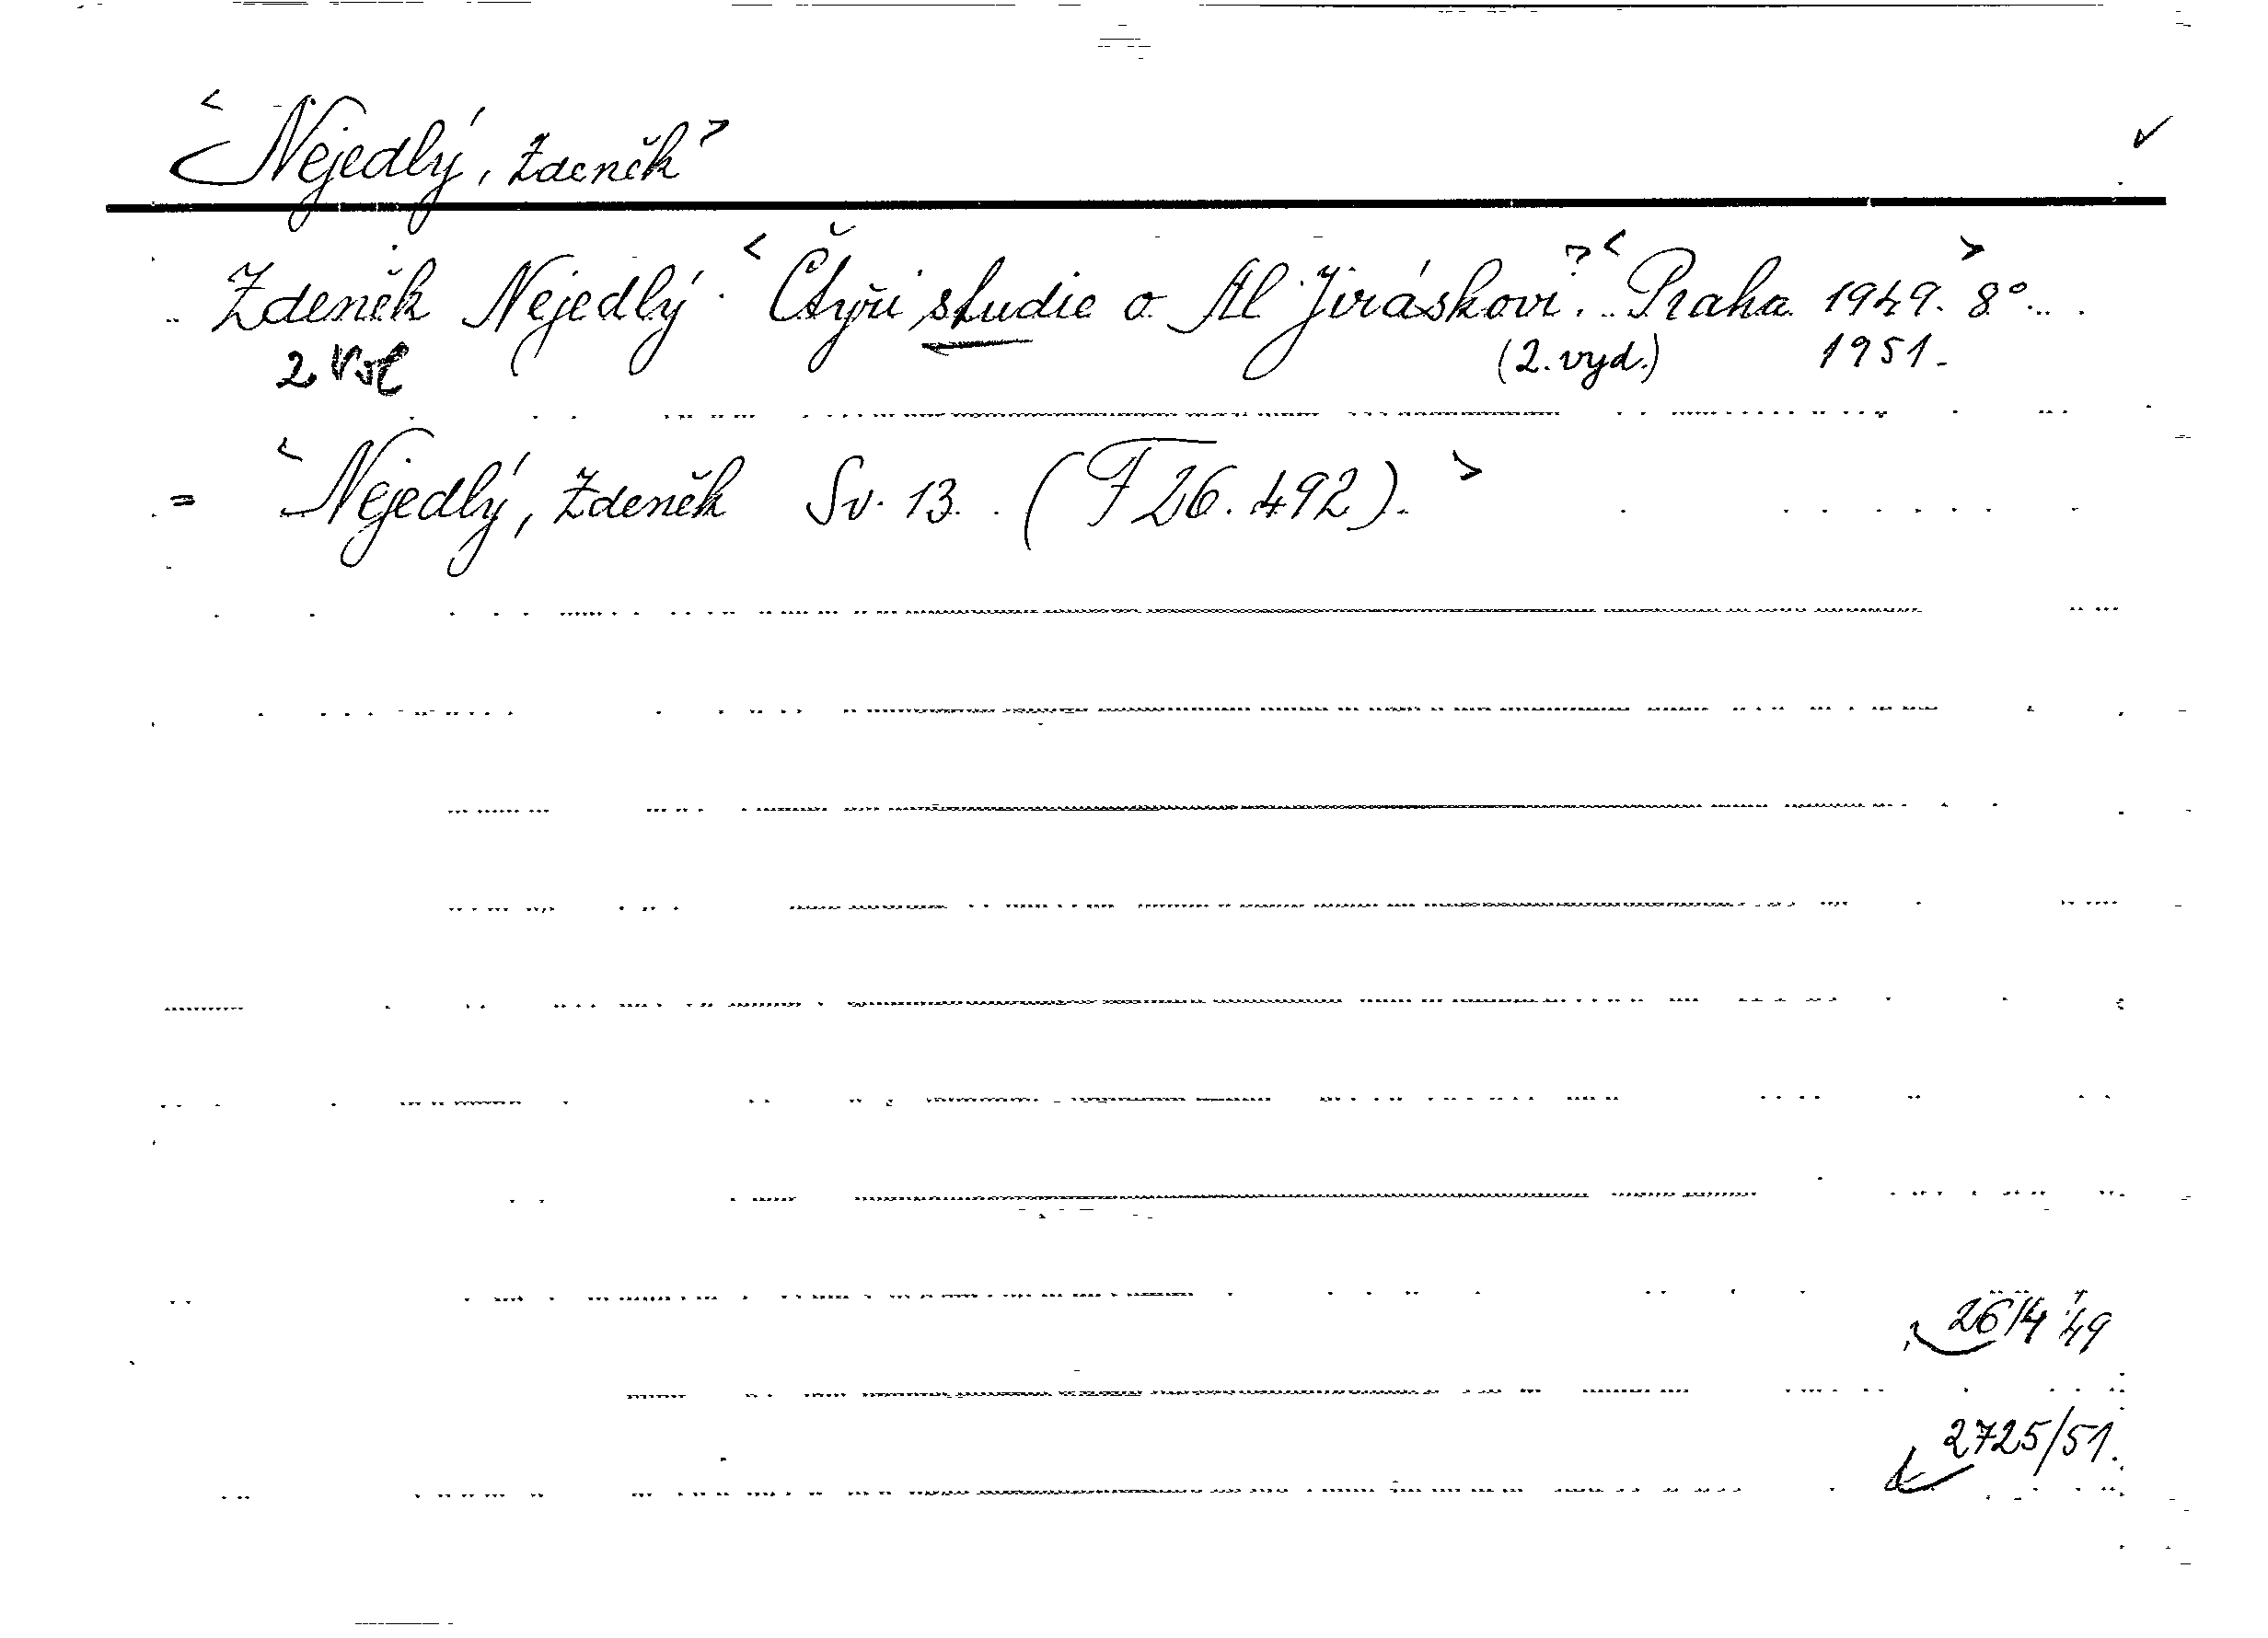 <Nejedlý, Zdeněk>
Zdeněk Nejedlý. <Čtyři studie o Al Jiráskovi.> <Praha 1949.> 8°.
2 Vol (2. vyd.) 1951.
= <Nejedlý, Zdeněk Sv. 13. (F 26.492).>
26/4 49
2725/51.